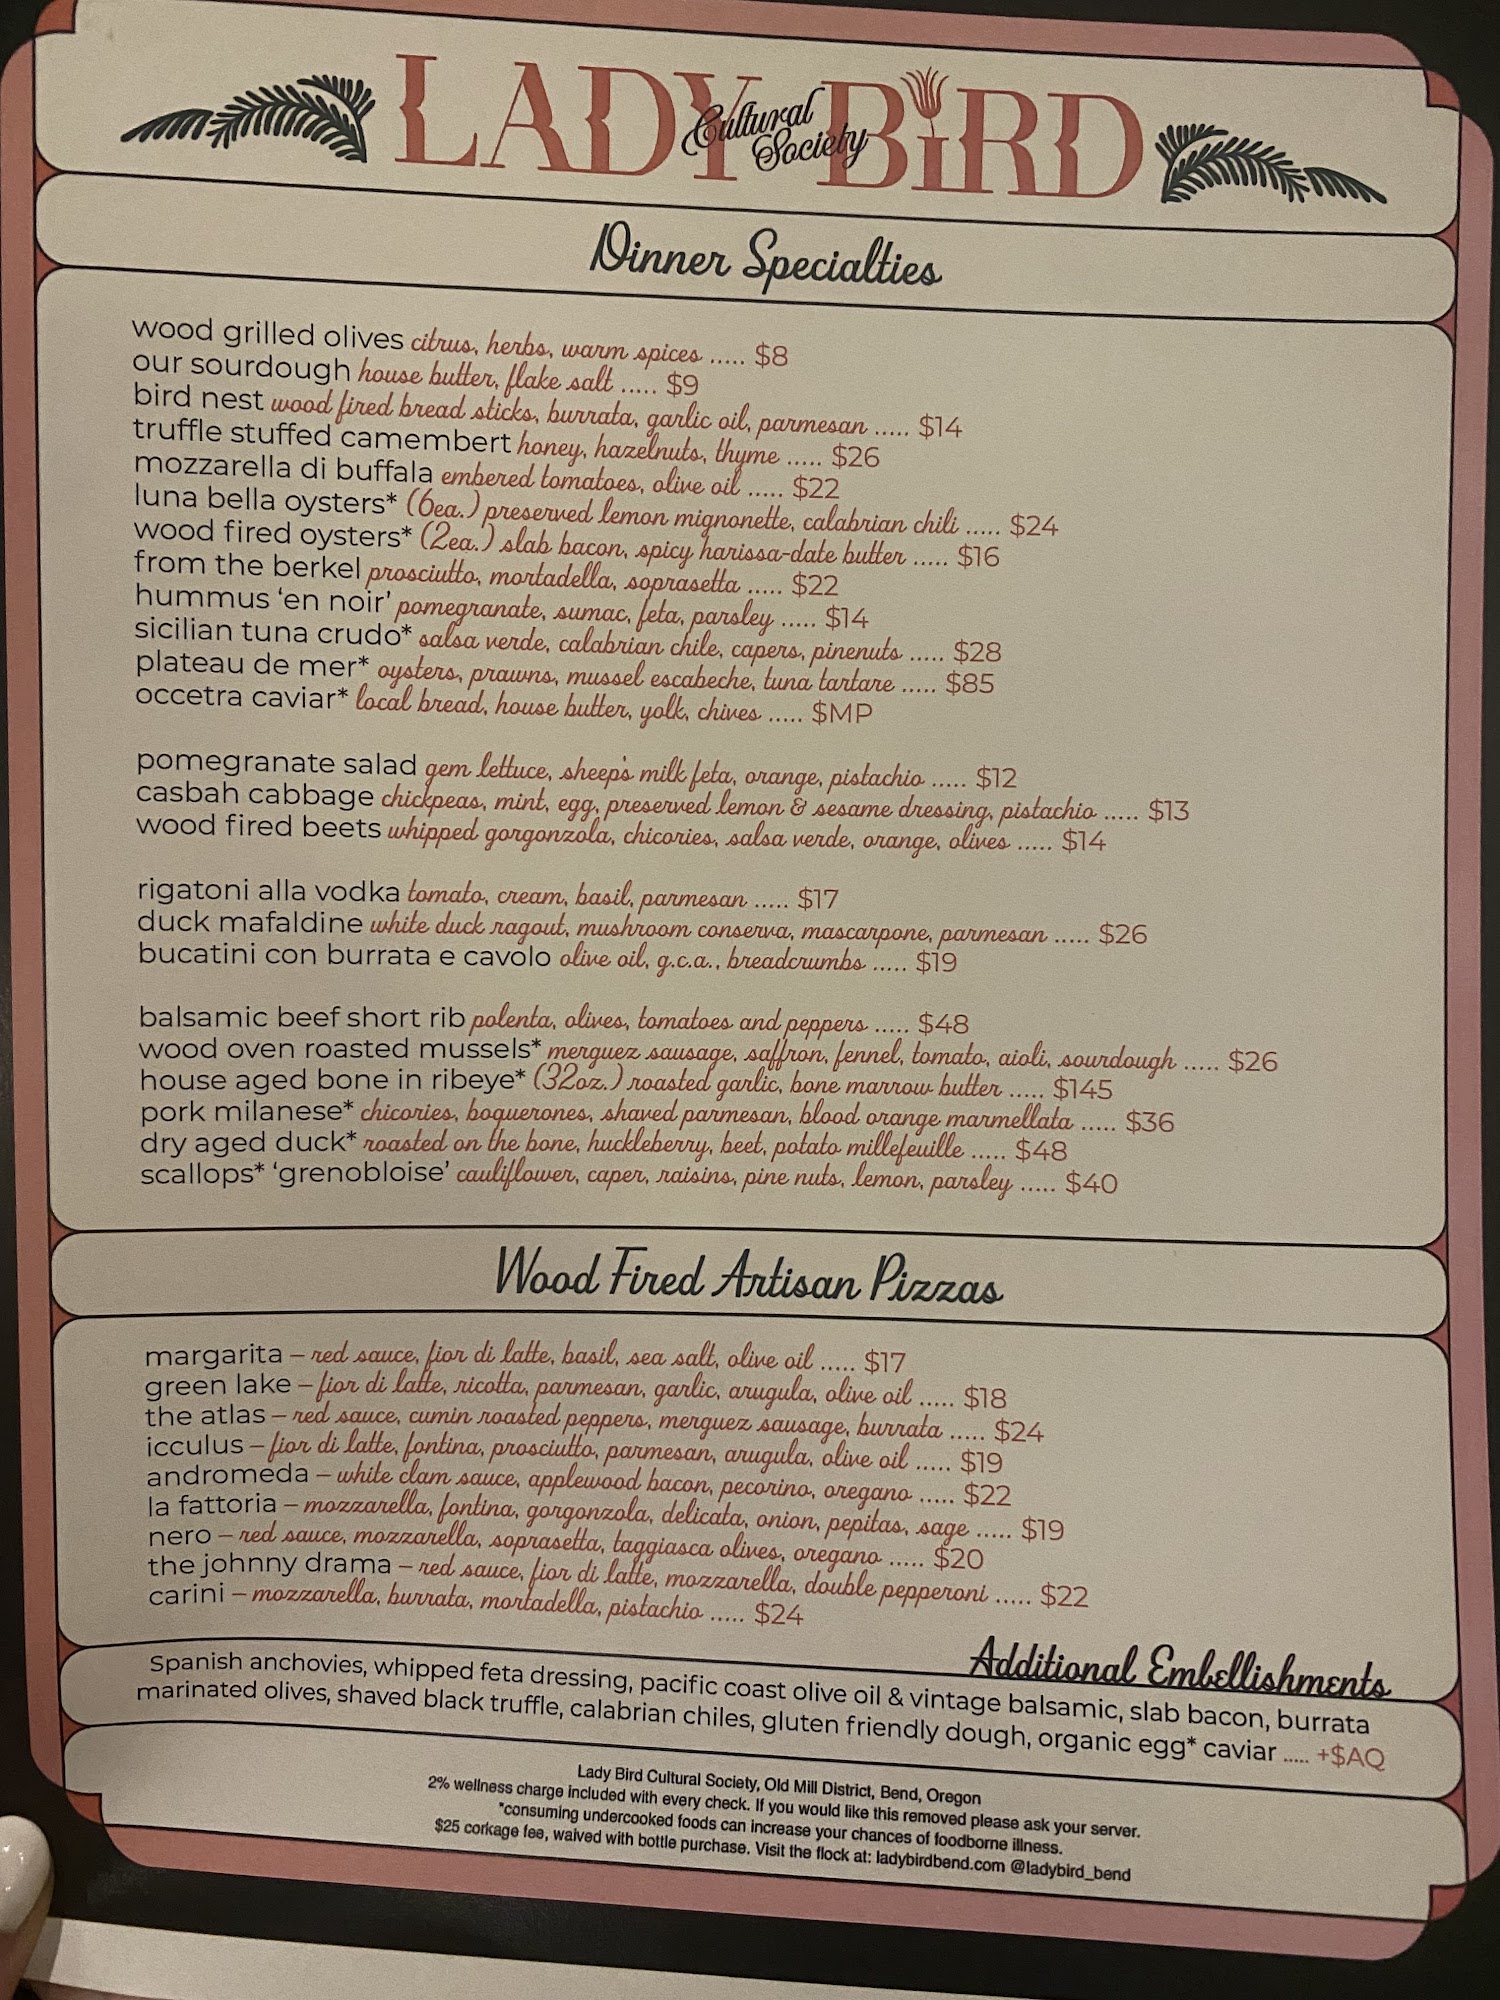 LADY BIRD
Cultural Society
Dinner Specialties
wood grilled olives citrus, herbs, warm spices ..... $8
our sourdough house butter, flake salt ..... $9
bird nest wood fired bread sticks, burrata, garlic oil, parmesan ..... $14
truffle stuffed camembert honey, hazelnuts, thyme ..... $26
mozzarella di buffala embered tomatoes, olive oil ..... $22
luna bella oysters* (6ea.) preserved lemon mignonette, calabrian chili ..... $24
wood fired oysters* (2ea.) slab bacon, spicy harissa-date butter ..... $16
from the berkel prosciutto, mortadella, soprasetta ..... $22
hummus 'en noir' pomegranate, sumac, feta, parsley ..... $14
sicilian tuna crudo* salsa verde, calabrian chile, capers, pinenuts ..... $28
plateau de mer* oysters, prawns, mussel escabeche, tuna tartare ..... $85
occetra caviar* local bread, house butter, yolk, chives ..... $MP
pomegranate salad gem lettuce, sheep's milk feta, orange, pistachio ..... $12
casbah cabbage chickpeas, mint, egg, preserved lemon & sesame dressing, pistachio ..... $13
wood fired beets whipped gorgonzola, chicories, salsa verde, orange, olives ..... $14
rigatoni alla vodka tomato, cream, basil, parmesan ..... $17
duck mafaldine white duck ragout, mushroom conserva, mascarpone, parmesan ..... $26
bucatini con burrata e cavolo olive oil, g.c.a., breadcrumbs ..... $19
balsamic beef short rib polenta, olives, tomatoes and peppers ..... $48
wood oven roasted mussels* merguez sausage, saffron, fennel, tomato, aioli, sourdough ..... $26
house aged bone in ribeye* (32oz.) roasted garlic, bone marrow butter ..... $145
pork milanese* chicories, boquerones, shaved parmesan, blood orange marmellata ..... $36
dry aged duck* roasted on the bone, huckleberry, beet, potato millefeuille ..... $48
scallops* 'grenobloise' cauliflower, caper, raisins, pine nuts, lemon, parsley ..... $40
Wood Fired Artisan Pizzas
margarita – red sauce, fior di latte, basil, sea salt, olive oil ..... $17
green lake – fior di latte, ricotta, parmesan, garlic, arugula, olive oil ..... $18
the atlas – red sauce, cumin roasted peppers, merguez sausage, burrata ..... $24
icculus – fior di latte, fontina, prosciutto, parmesan, arugula, olive oil ..... $19
andromeda – white clam sauce, applewood bacon, pecorino, oregano ..... $22
la fattoria – mozzarella, fontina, gorgonzola, delicata, onion, pepitas, sage ..... $19
nero – red sauce, mozzarella, soprasetta, taggiasca olives, oregano ..... $20
the johnny drama – red sauce, fior di latte, mozzarella, double pepperoni ..... $22
carini – mozzarella, burrata, mortadella, pistachio ..... $24
Additional Embellishments
Spanish anchovies, whipped feta dressing, pacific coast olive oil & vintage balsamic, slab bacon, burrata
marinated olives, shaved black truffle, calabrian chiles, gluten friendly dough, organic egg* caviar ..... +$AQ
Lady Bird Cultural Society, Old Mill District, Bend, Oregon
2% wellness charge included with every check. If you would like this removed please ask your server.
*consuming undercooked foods can increase your chances of foodborne illness.
$25 corkage fee, waived with bottle purchase. Visit the flock at: ladybirdbend.com @ladybird_bend